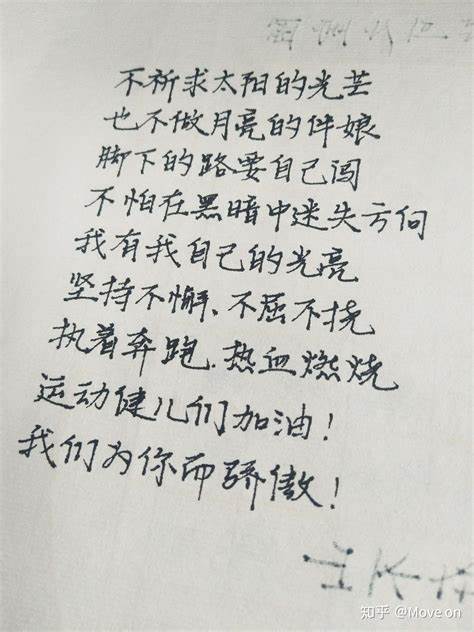 不祈求太阳的光芒
也不做月亮的伴娘
脚下的路要自己闯
不怕在黑暗中迷失方向
我有我自己的光亮
坚持不懈、不屈不挠
执着奔跑、热血燃烧
运动健儿们加油！
我们为你而骄傲！
知乎 @Move on